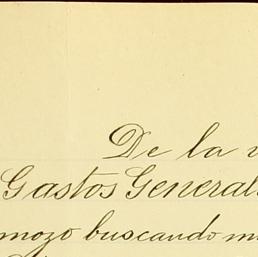 De la
Gastos General
mozo buscando